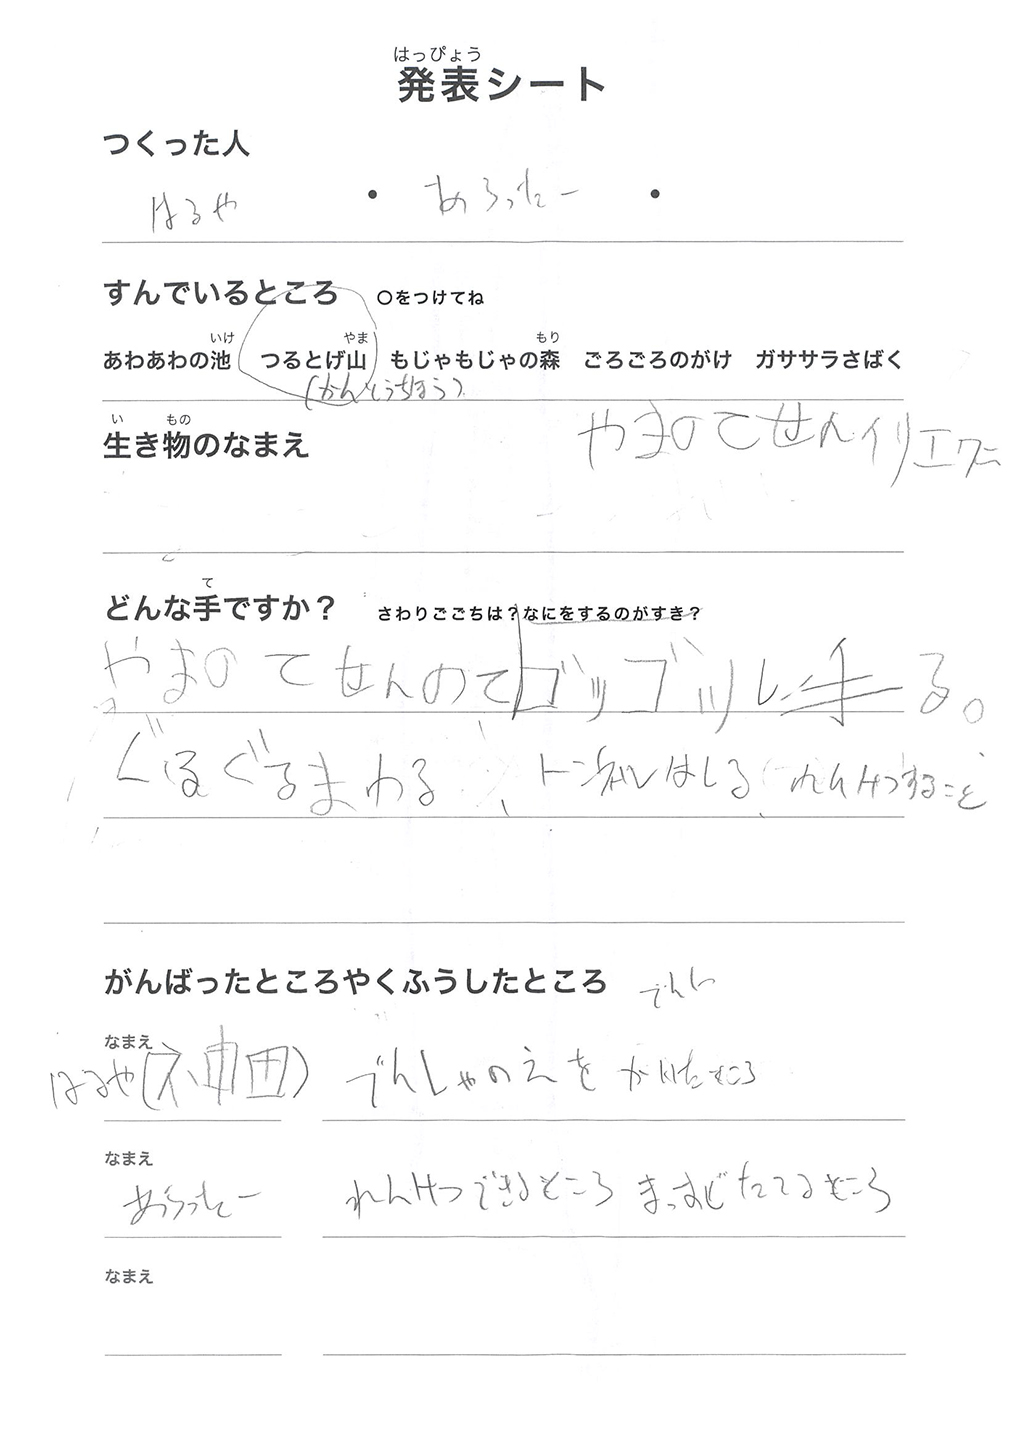 はっぴょう
発表シート
つくった人
はるや ・ あらったー ・
すんでいるところ 〇をつけてね
いけ やま もり
あわあわの池 つるとげ山 もじゃもじゃの森 ごろごろのがけ ガササラさばく
(かんとうちほう)
い もの
生き物のなまえ
やまのてせんイリエワニ
て
どんな手ですか？ さわりごごちは？なにをするのがすき？
やまのてせんのて ゴッゴツし手る。
ぐるぐるまわる トンネルはしる れんけつすること
がんばったところやくふうしたところ
でんし
なまえ
はるや(神田) でんしゃのえを かいたところ
なまえ
あらったー れんけつできるところ まっすぐたてるところ
なまえ